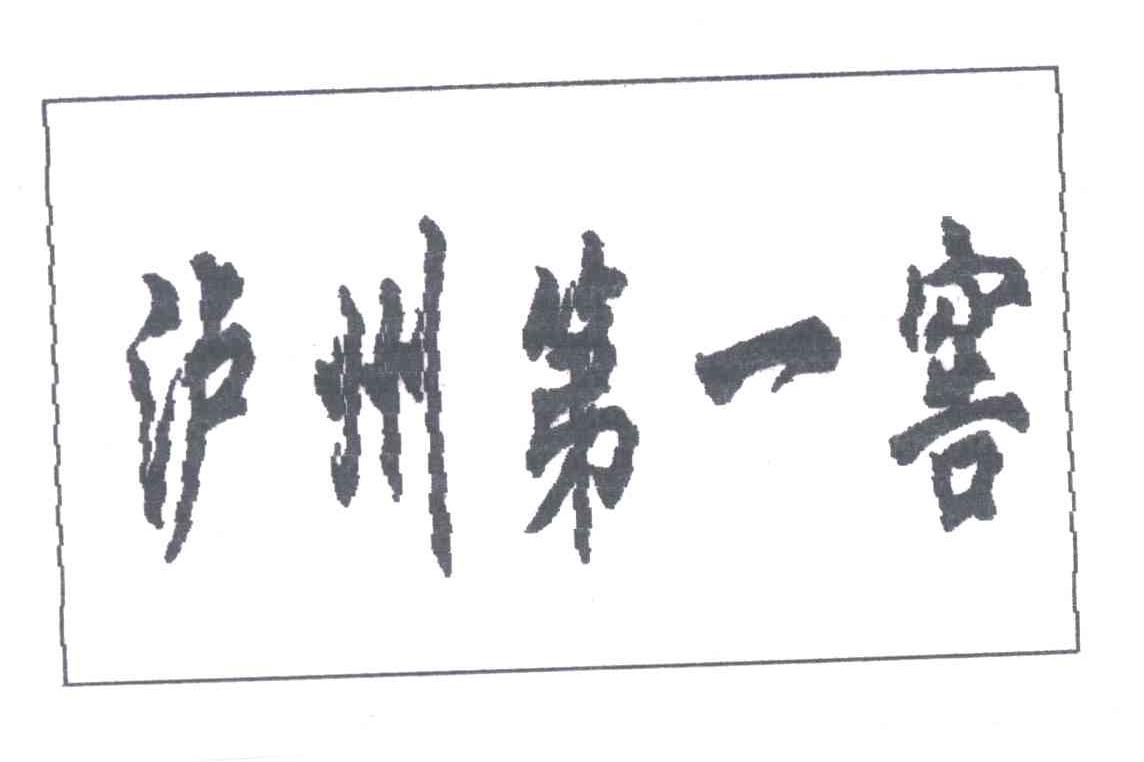 泸州第一窖